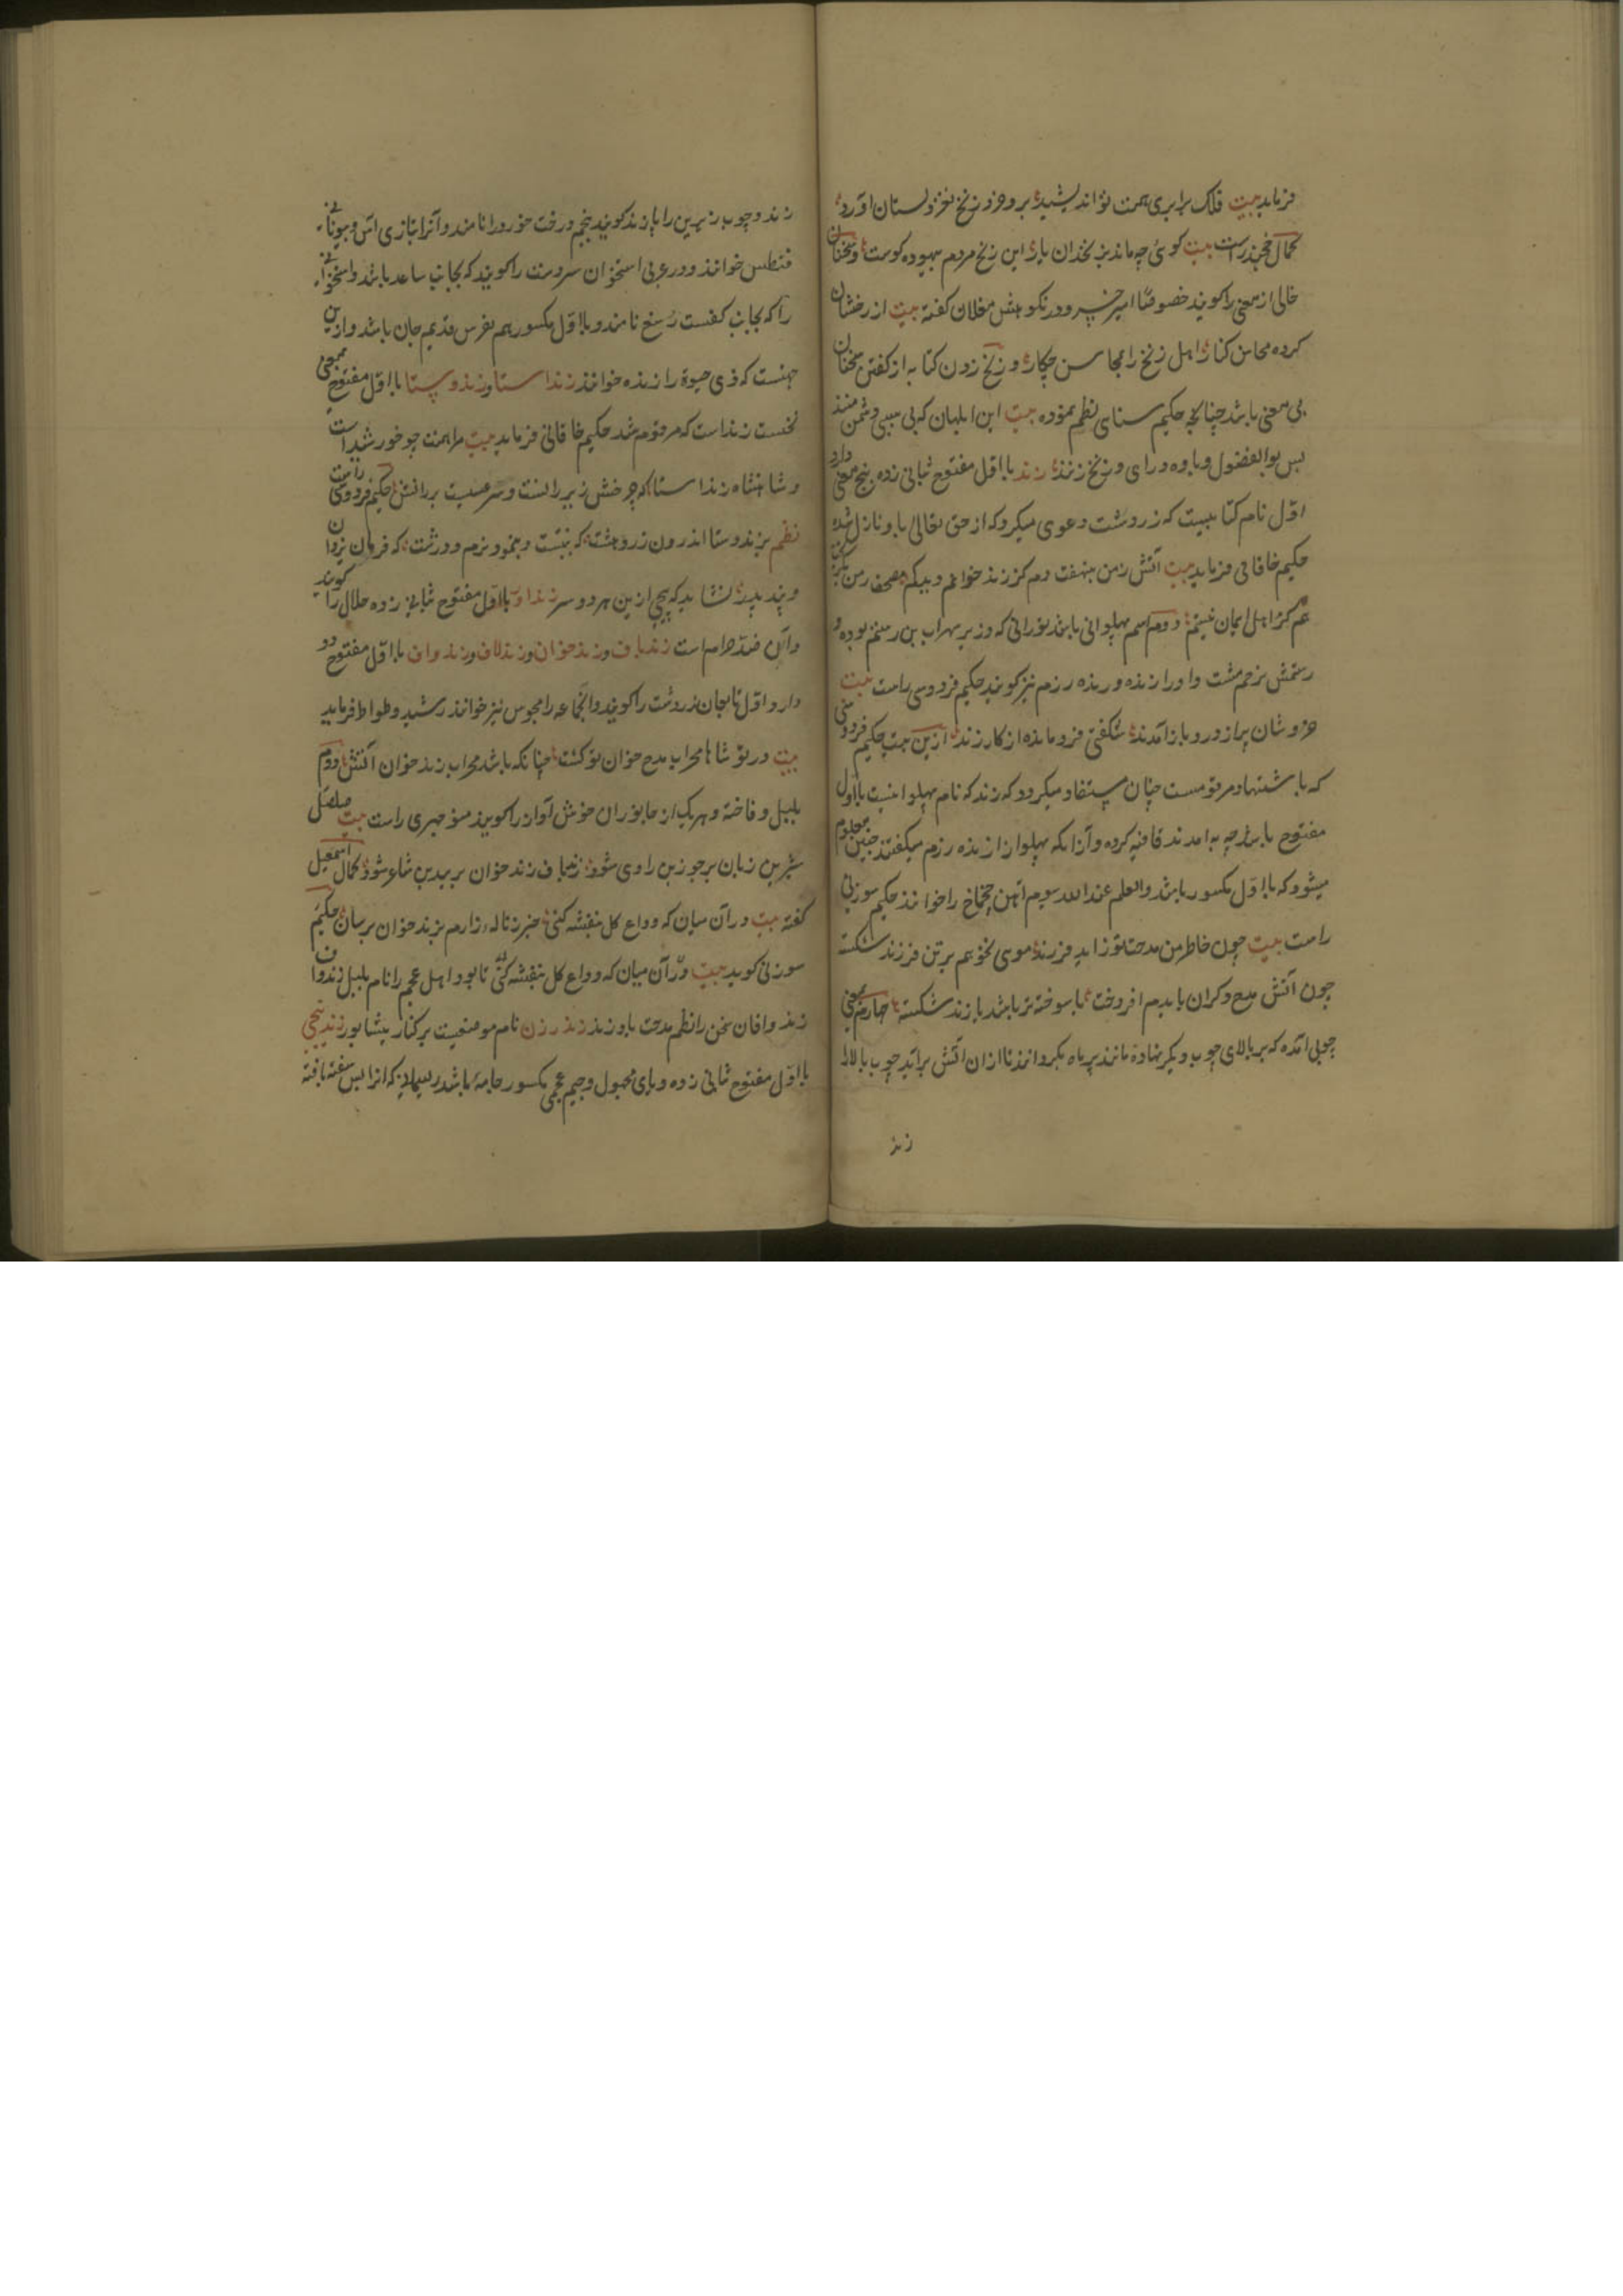 فرماید بیت فلک برابری همت تو اندیشید بر و خرد زنخ نغز دلستان آورد
کمال خجند راست بیت کوئی چه ماند بزنخدان یار این زنخ مردم بیهوده کوست و سخنان
خالی از معنی را کویند خصوصا امیر خسرو در نکوهش مغلان کفته بیت از زخشان
کرده محاسن کنار اهل زنخ را بمحاسن چکار و زنخ زدن کنایه از کفتن سخنان
بی معنی باشد چنانچه حکیم سنای نظم نموده بیت این ابلهان که بی سببی دشمن منند
بس بوالفضول و یاوه درای و زنخ زنند زند با اول مفتوح بثانی زده پنج معنی دارد
اول نام کتابیست که زردشت دعوی میکرد که از حق تعالی باو نازل شده
حکیم خاقانی فرماید بیت آتش زمن بنهفت دم کز زند خوانم
عم کز اهل ایمان نیستم دوم اسم پهلوانی باشد تورانی که وزیر سهراب بن رستم بوده و
رستمش بزخم مشت و او را زنده و زنده رزم نیز کویند حکیم فردوسی راست بیت
خروشان پر از درد باز آمدند شکفتی فرو مانده از کار زند ازین بیت حکیم فردوسی
که باستشهاد مرقومست چنان مستفاد میکردد که زند که نام پهلوانیست با اول
مفتوح باشد چه به آمدند قافیه کرده و آنرا که پهلوان از زنده رزم میکفتند چنین معلوم
میشود که با اول مکسور باشد والعلم عند الله سیوم آهن چخماخ را خوانند حکیم سوزنی
راست بیت چون خاطر من مدحت تو زاید فرزند موسی نخوهم بر تن فرزند شکسته
چون آتش مدح دکران بایدم افروخت با سوخته تر باشد با زند شکسته چهارم بمعنی
چوبی آمده که بر بالای چوب دیکر نهاده مانند پرماه بکردانند تا ازان آتش برآید چوب بالا را
زند
زند و چوب زیرین را پازند کویند پنجم درخت خورد را نامند و آنرا بتازی آس و بیونانی
فنطس خوانند و در عربی استخوان سردست را کویند که بجانب ساعد باشد و استخوانی
را که بجانب کفست رسغ نامند و با اول مکسور هم بفرس قدیم جان باشد و ازین
جهتست که ذی حیوة را زنده خوانند زند استا و زند و پستا با اول مفتوح بمعنی
نخست زند است که مرقوم شد حکیم خاقانی فرماید بیت مرا همت چو خورشید است
و شاهنشاه زند استا که چرخش زیر رانست و سر عیسیست بر رانش حکیم فردوسی راست
نظم بزند و ستا اندرون زردهشت که بنبشت و بنمود نرم و درشت که فرمان یزدان
و پند پدر نشاید که پیچی ازین هر دو سر زنداو با اول مفتوح بثانی زده حلال را کویند
و آن ضد حرام است زندباف و زند خوان و زندلاف و زندواف با اول مفتوح دو
دارد اول تابعان زردشت را کویند و آنجماعه را مجوس نیز خوانند رشید وطواط فرماید
بیت در تو شاها محراب مدح خوان تو کشت چنانکه باشد محراب زند خوان آتش دوم
بلبل و فاخته و هر یک از جانوران خوش آواز را کویند منوچهری راست بیت صلصل
شیرین زبان بر جوزبن راوی شود زندباف زند خوان بر بیدبن شاعر شود کمال اسمعیل
کفته بیت در آن میان که وداع کل بنفشه کنی خبر ز ناله زارم بزند خوان برسان حکیم
سوزنی کوید بیت در آن میان که وداع کل بنفشه کنی تا بود اهل عجم را نام بلبل زندواف
زند وافان سخن را نظم مدحت باد زند زند رزن نام موضعیست بر کنار نیشابور زند پیچی
با اول مفتوح بثانی زده و یای مجهول و جیم عجمی مکسور جامه باشد ریسمانی که آنرا بس سفته بافته